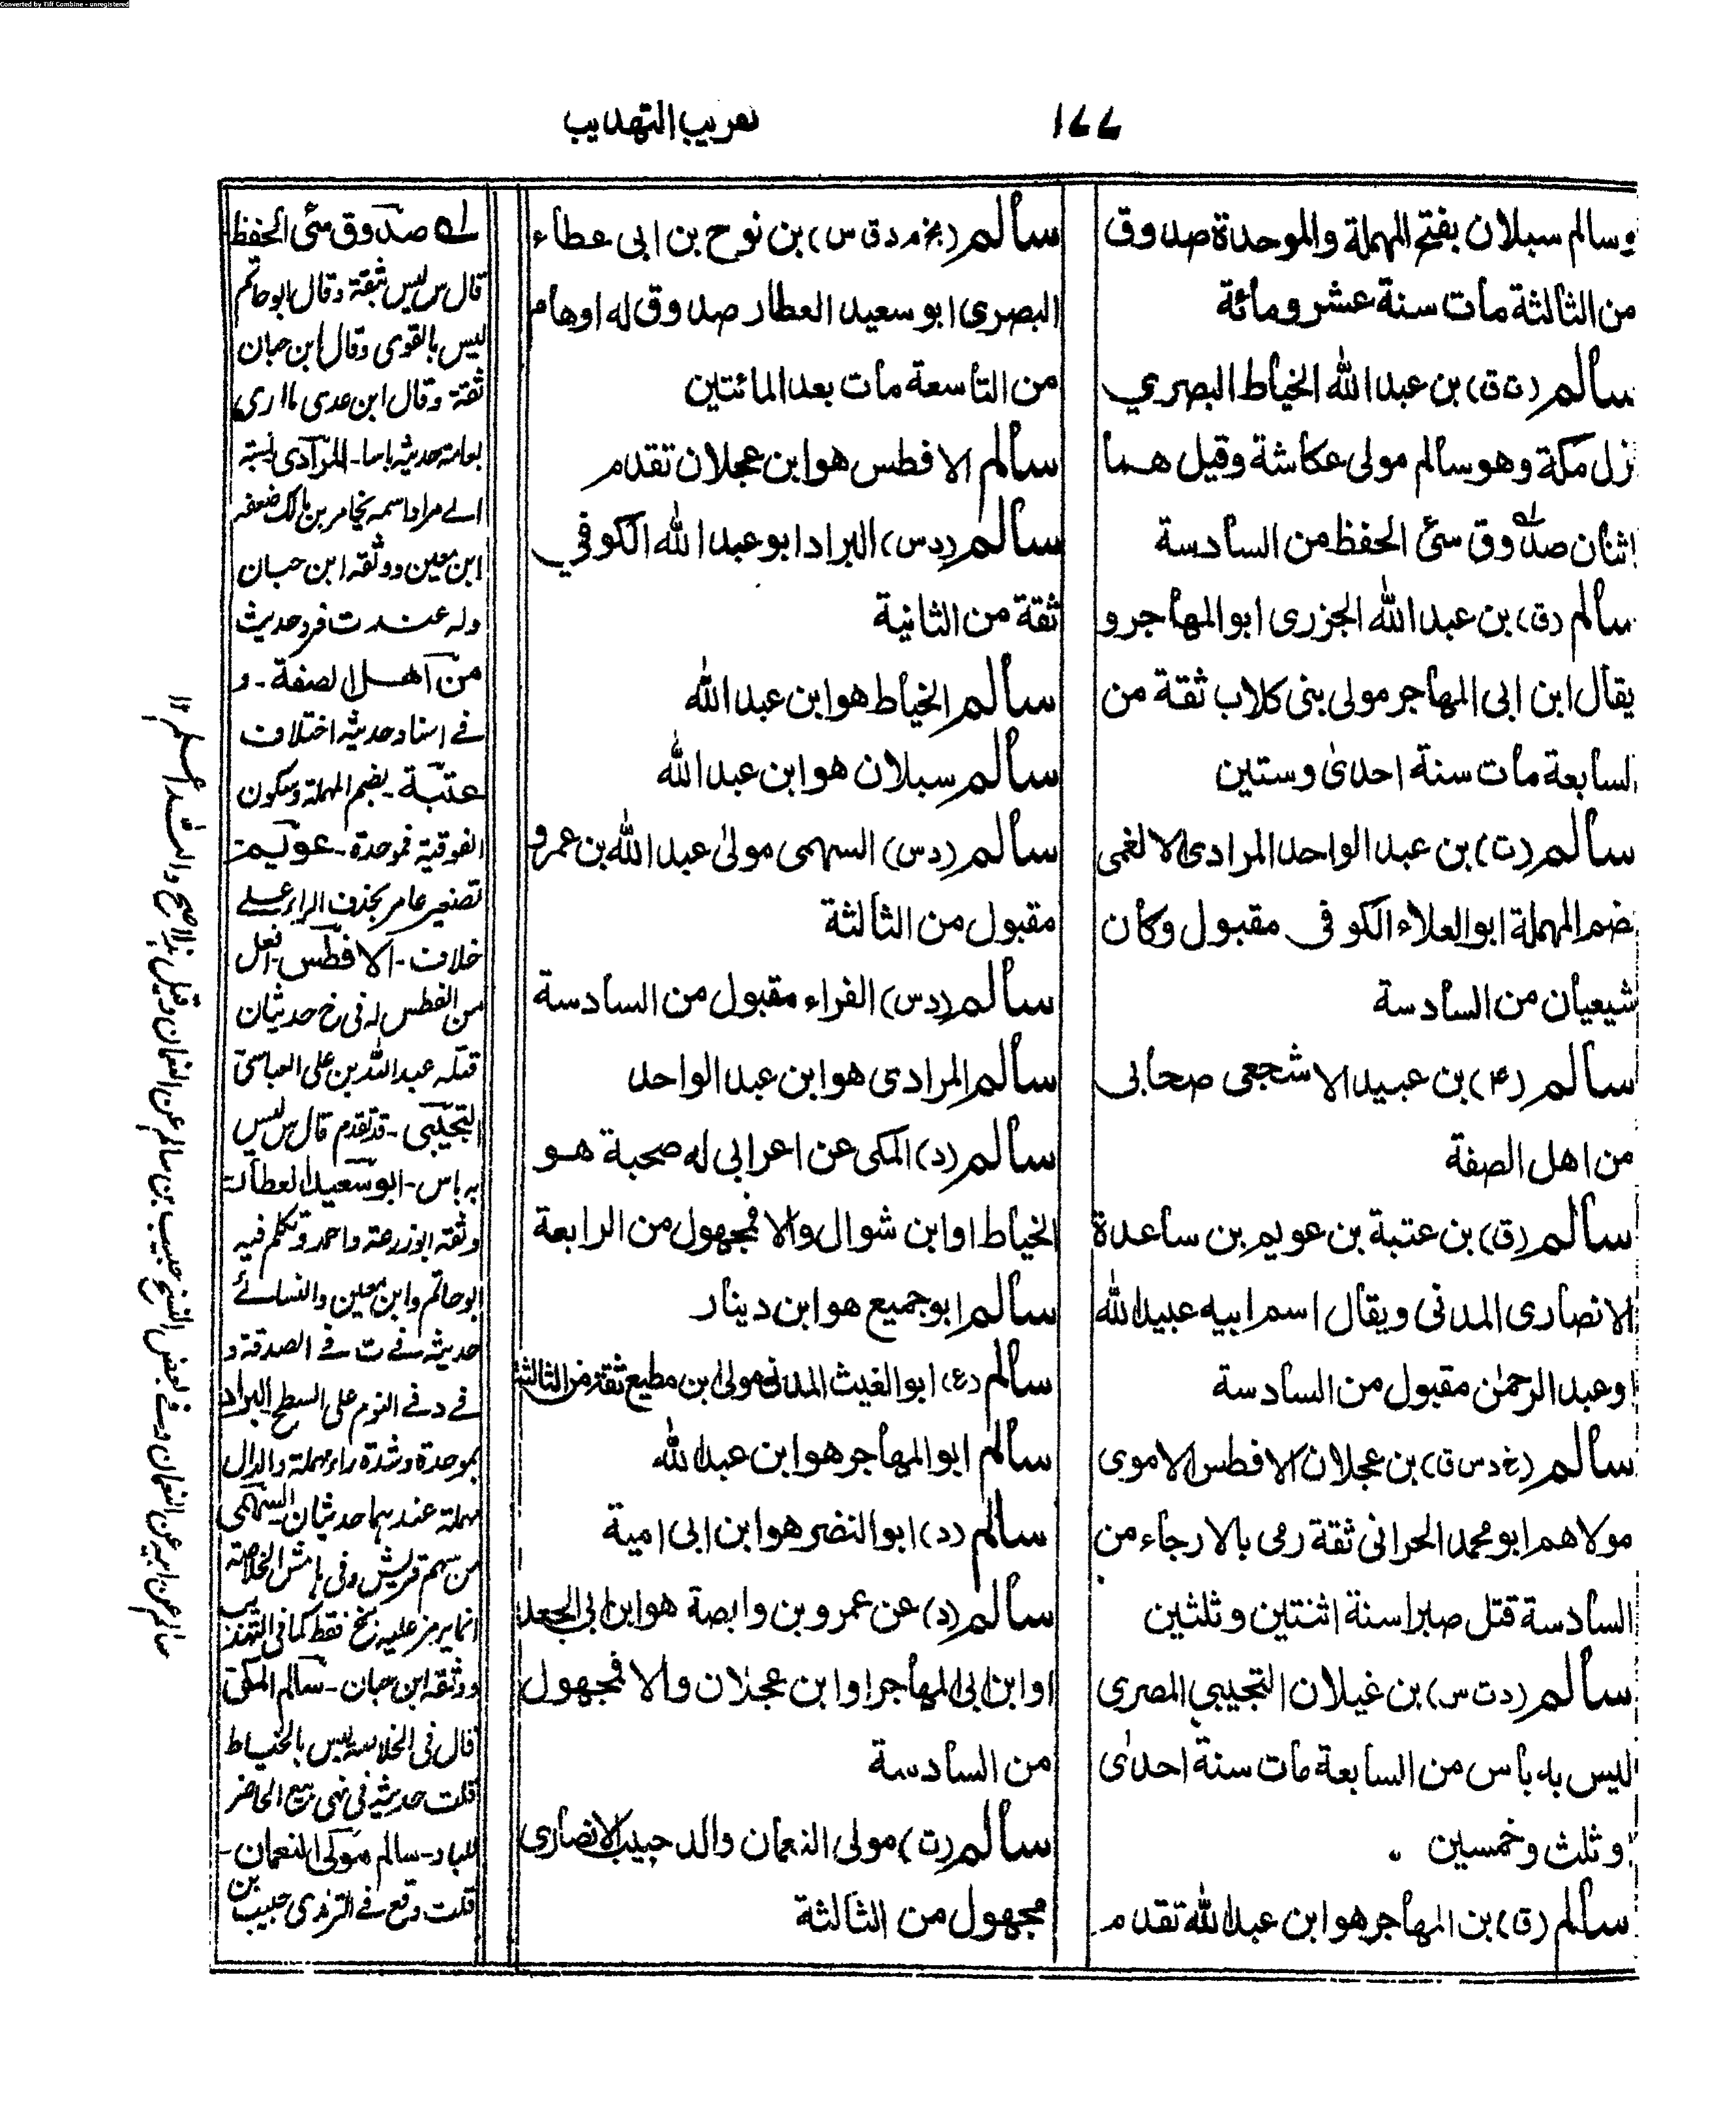 Converted by Tiff Combine - unregistered
١٧٧
تقريب التهذيب
وسالم سبلان بفتح المهملة والموحدة صدوق
من الثالثة مات سنة عشر ومائة
سالم (ت ق) بن عبد الله الخياط البصري
نزل مكة وهو سالم مولى عكاشة وقيل هما
اثنان صدوق سئ الحفظ من السادسة
سالم (ق) بن عبد الله الجزرى ابو المهاجر و
يقال ابن ابى المهاجر مولى بنى كلاب ثقة من
السابعة مات سنة احدى وستين
سالم (ت) بن عبد الواحد المرادى الانعمى
ضم المهملة ابو العلاء الكوفى مقبول وكان
شيعيان من السادسة
سالم (٤) بن عبيد الاشجعى صحابى
من اهل الصفة
سالم (ق) بن عتبة بن عويم بن ساعدة
الانصارى المدنى ويقال اسم ابيه عبيد الله
او عبد الرحمن مقبول من السادسة
سالم (خ د س ق) بن عجلان الافطس الاموى
مولاهم ابو محمد الحرانى ثقة رمى بالارجاء من
السادسة قتل صبرا سنة اثنتين وثلثين
سالم (د ت س) بن غيلان التجيبي المصرى
ليس به بأس من السابعة مات سنة احدى
او ثلث وخمسين
سالم (ق) بن المهاجر هو ابن عبد الله تقدم
سالم (بخ م د ق س) بن نوح بن ابى عطاء
البصرى ابو سعيد العطار صدوق له اوهام
من التاسعة مات بعد المائتين
سالم الافطس هو ابن عجلان تقدم
سالم (د س) البراد ابو عبد الله الكوفي
ثقة من الثانية
سالم الخياط هو ابن عبد الله
سالم سبلان هو ابن عبد الله
سالم (د س) السهمى مولى عبد الله بن عمرو
مقبول من الثالثة
سالم (د س) الفراء مقبول من السادسة
سالم المرادى هو ابن عبد الواحد
سالم (د) المكى عن اعرابى له صحبة هو
الخياط او ابن شوال والا فمجهول من الرابعة
سالم ابو جميع هو ابن دينار
سالم (ع) ابو الغيث المدنى مولى ابن مطيع ثقة من الثالثة
سالم ابو المهاجر هو ابن عبد الله
سالم (د) ابو النضر هو ابن ابى امية
سالم (د) عن عمرو بن وابصة هو ابن ابى الجعد
او ابن ابى المهاجر او ابن عجلان والا فمجهول
من السادسة
سالم (ت) مولى النعمان والد حبيب الانصارى
مجهول من الثالثة
له صدوق سئ الحفظ
قال س ليس بثقة وقال ابو حاتم
ليس بالقوى وقال ابن حبان
ثقة وقال ابن عدى ما ارى
بعامة حديثه باسا - المرادى نسبة
الى مراد اسمه يحابر بن مالك ضعفه
ابن معين ووثقه ابن حبان
وله عند ت فرد حديث
من اهل الصفة - و
فى اسناد حديثه اختلاف
عتبة - بضم المهملة وسكون
الفوقية فموحدة - عويم
تصغير عامر بحذف الراء على
خلاف - الافطس افعل
من الفطس له فى خ حديثان
قتله عبد الله بن على العباسى
التجيبى - قد تقدم قال س ليس
به باس - ابو سعيد العطار
وثقه ابو زرعة واحمد وتكلم فيه
ابو حاتم وابن معين والنسائى
حديثه فى ت فى الصدقة و
فى د فى النوم على السطح البراد
بموحدة وشدة راء مهملة والدال
مهملة عندهما حديثان السهمى
من سهم قريش وفى هامش الخلاصة
انما يرمز عليه بخ فقط كما فى التهذيب
ووثقه ابن حبان - سالم المكى
قال فى الخلاصة ليس بالخياط
قلت حديثه فى نهى بيع الحاضر
للباد - سالم مولى النعمان -
قلت وقع فى الترمذى حبيب بن
سالم عن ابيه عن النعمان وفى بعض النسخ حبيب بن سالم عن النعمان وقيل هذا صح والله اعلم ١٢